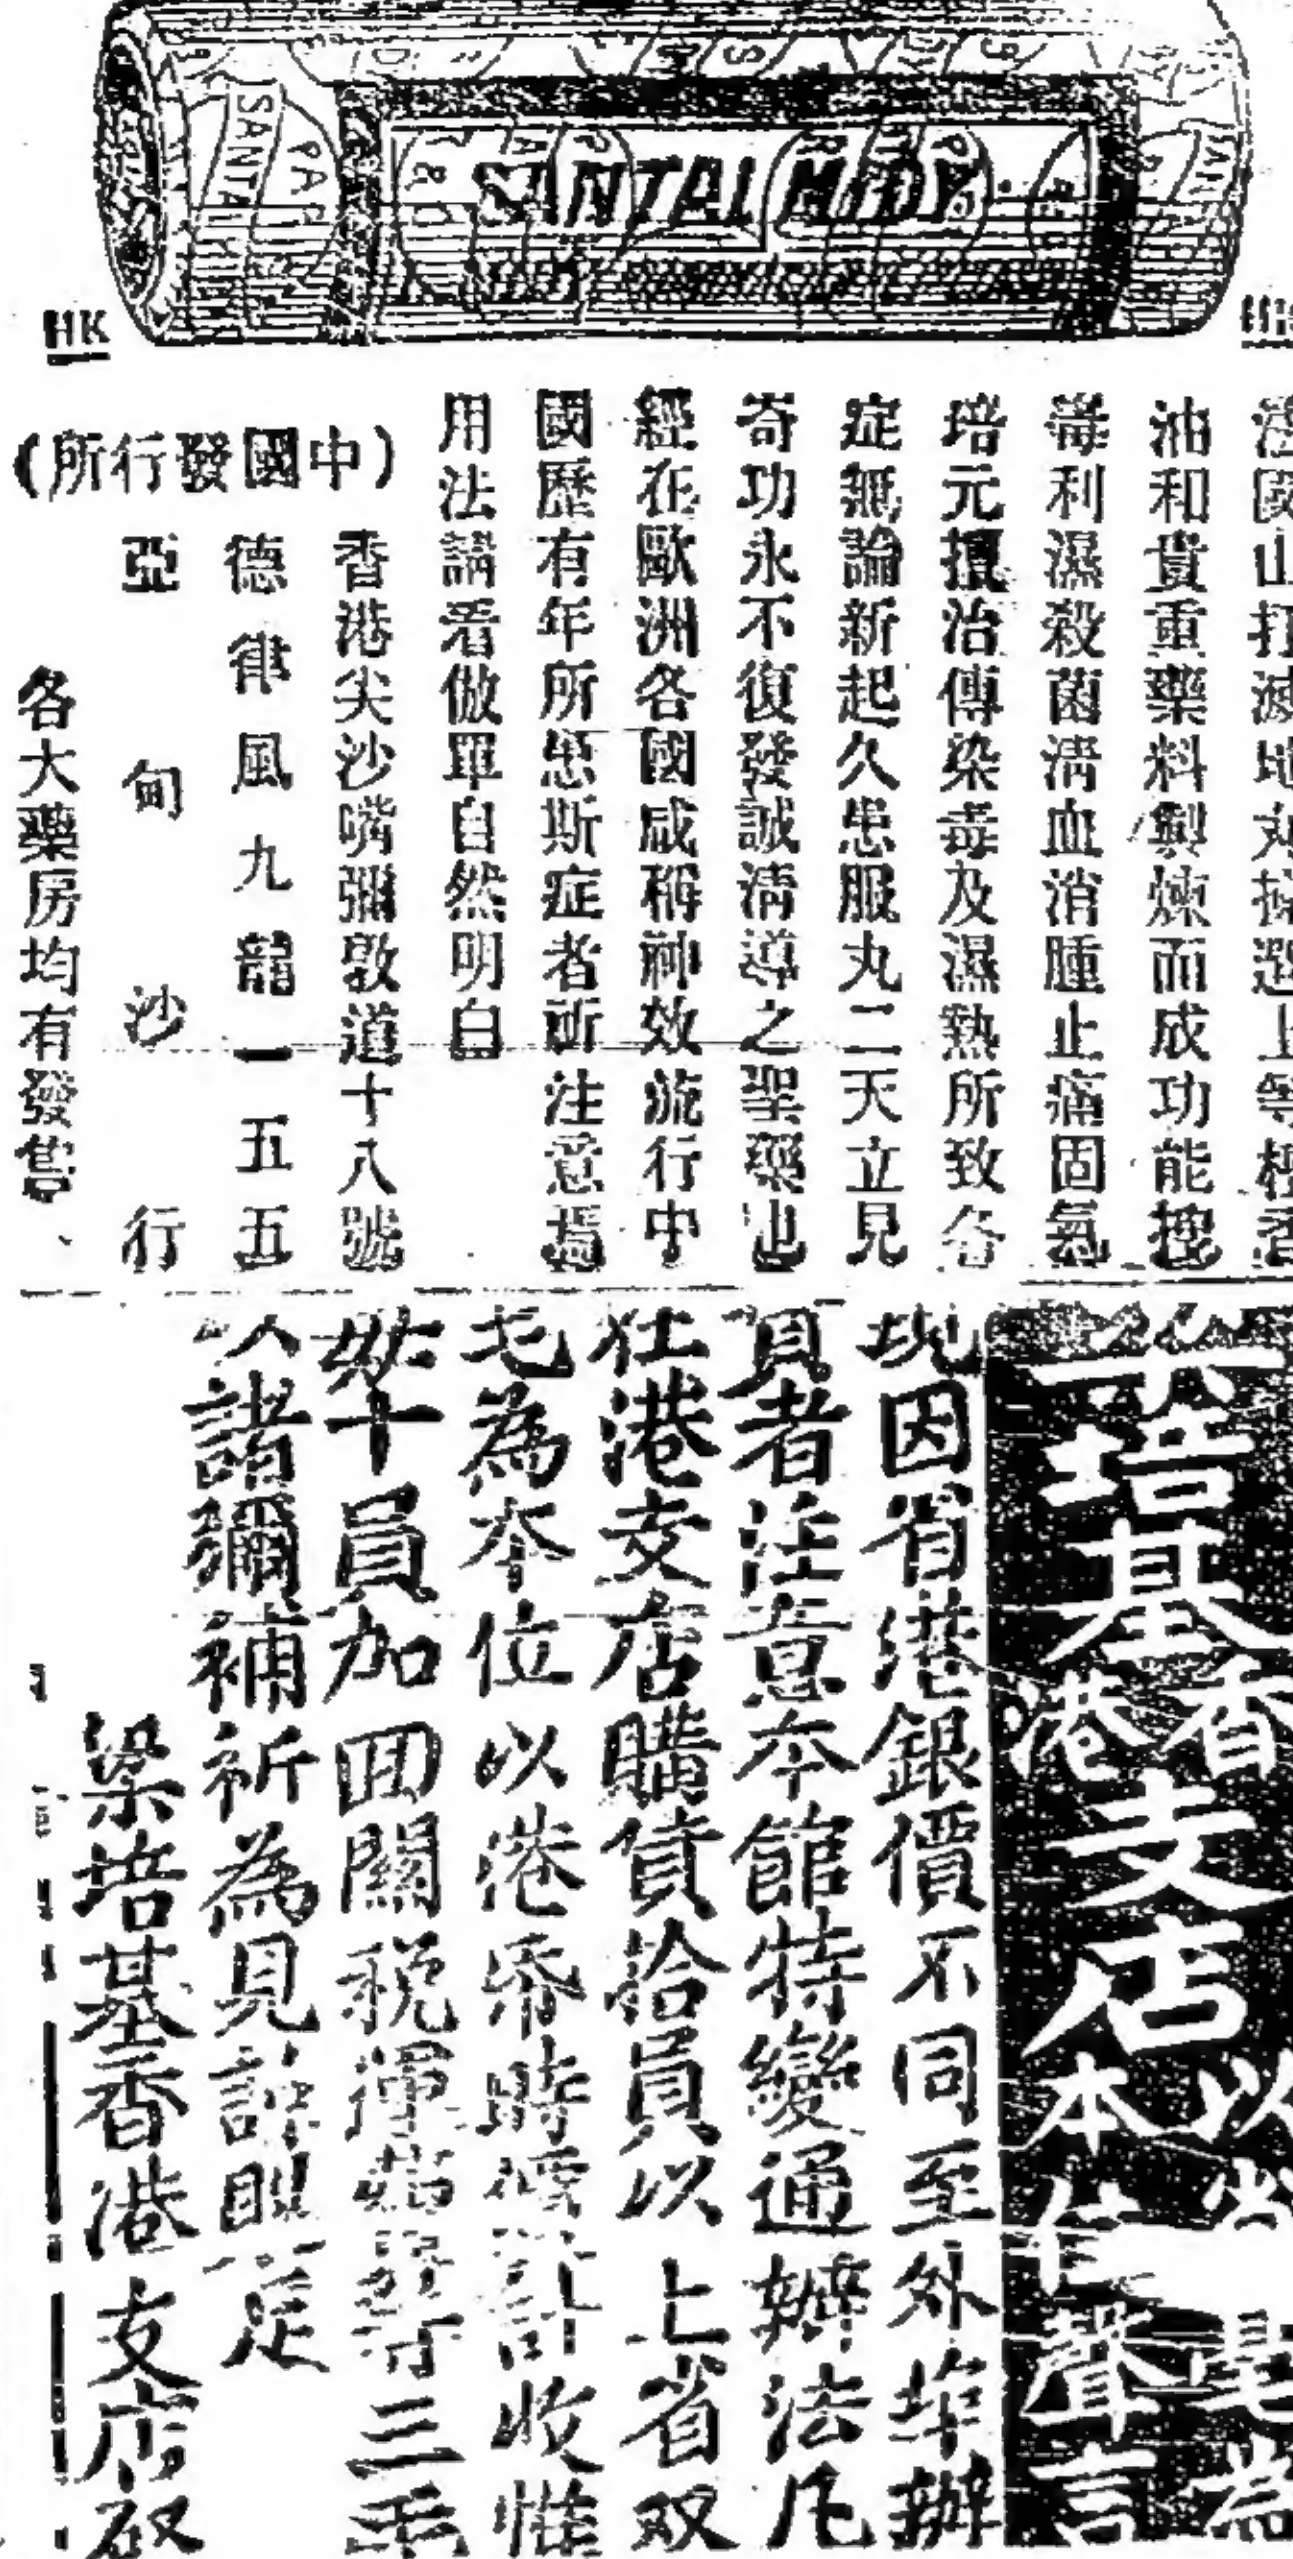 SANTAL MIDY
HK
油和貴重藥料製煉而成功能搜
毒利濕殺菌淸血消腫止痛固氣
培元攝治傳染毒及濕熱所致各
症無論新起久患服丸二天立見
奇功永不復發誠淸導之聖藥也
經在歐洲各國咸稱神效流行中
國歷有年所患斯症者所注意焉
用法請看倣單自然明白
(中國發行所)
香港尖沙嘴彌敦道十八號
德律風九龍一五五五
亞甸沙行
各大藥房均有發售、
培基香港支店
以毫為本位聲言
現因省港銀價不同至外埠辦
貨者注意本館特變通辦法凡
在港支店購貨拾員以上省双
毛為本位以港紙時價計收惟
每十員加回關稅運費等三毛
以諸彌補祈為見諒是
梁培基香港支店啟